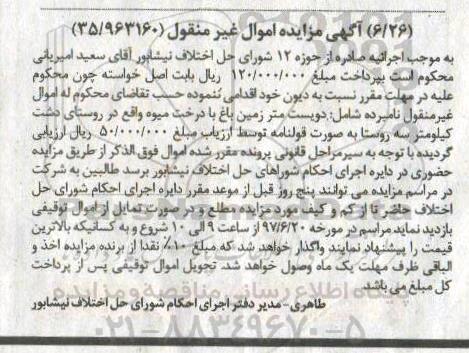 (۶/۲۶) آگهی مزایده اموال غیر منقول (۳۵/۹۶۳۱۶۰)
به موجب اجرائیه صادره از حوزه ۱۲ شورای حل اختلاف نیشابور آقای سعید امیریانی
محکوم است بپرداخت مبلغ ۱۲۰/۰۰۰/۰۰۰ ریال بابت اصل خواسته چون محکوم
علیه در مهلت مقرر نسبت به دیون خود اقدامی ننموده حسب تقاضای محکوم له اموال
غیرمنقول نامبرده شامل: دویست متر زمین باغ با درخت میوه واقع در روستای دشت
کیلومتر سه روستا به صورت قولنامه توسط ارزیاب مبلغ ۵۰/۰۰۰/۰۰۰ ریال ارزیابی
گردیده با توجه به سیرمراحل قانونی پرونده مقرر شده اموال فوق الذکر از طریق مزایده
حضوری در دایره اجرای احکام شوراهای حل اختلاف نیشابور برسد طالبین به شرکت
در مراسم مزایده می توانند پنج روز قبل از موعد مقرر دایره اجرای احکام شورای حل
اختلاف حاضر تا از کم و کیف مورد مزایده مطلع و در صورت تمایل از اموال توقیفی
بازدید نماید مراسم در مورخه ۹۷/۶/۲۰ از ساعت ۹ الی ۱۰ شروع و به کسانیکه بالاترین
قیمت را پیشنهاد نمایند واگذار خواهد شد که مبلغ ۱۰٪ نقدا از برنده مزایده اخذ و
الباقی ظرف مهلت یک ماه وصول خواهد شد. تحویل اموال توقیفی پس از پرداخت
کل مبلغ می باشد.
طاهری- مدیر دفتر اجرای احکام شورای حل اختلاف نیشابور
پایگاه اطلاع رسانی مناقصه و مزایده
۰۲۱-۸۸۳۴۹۶۷۰-۵